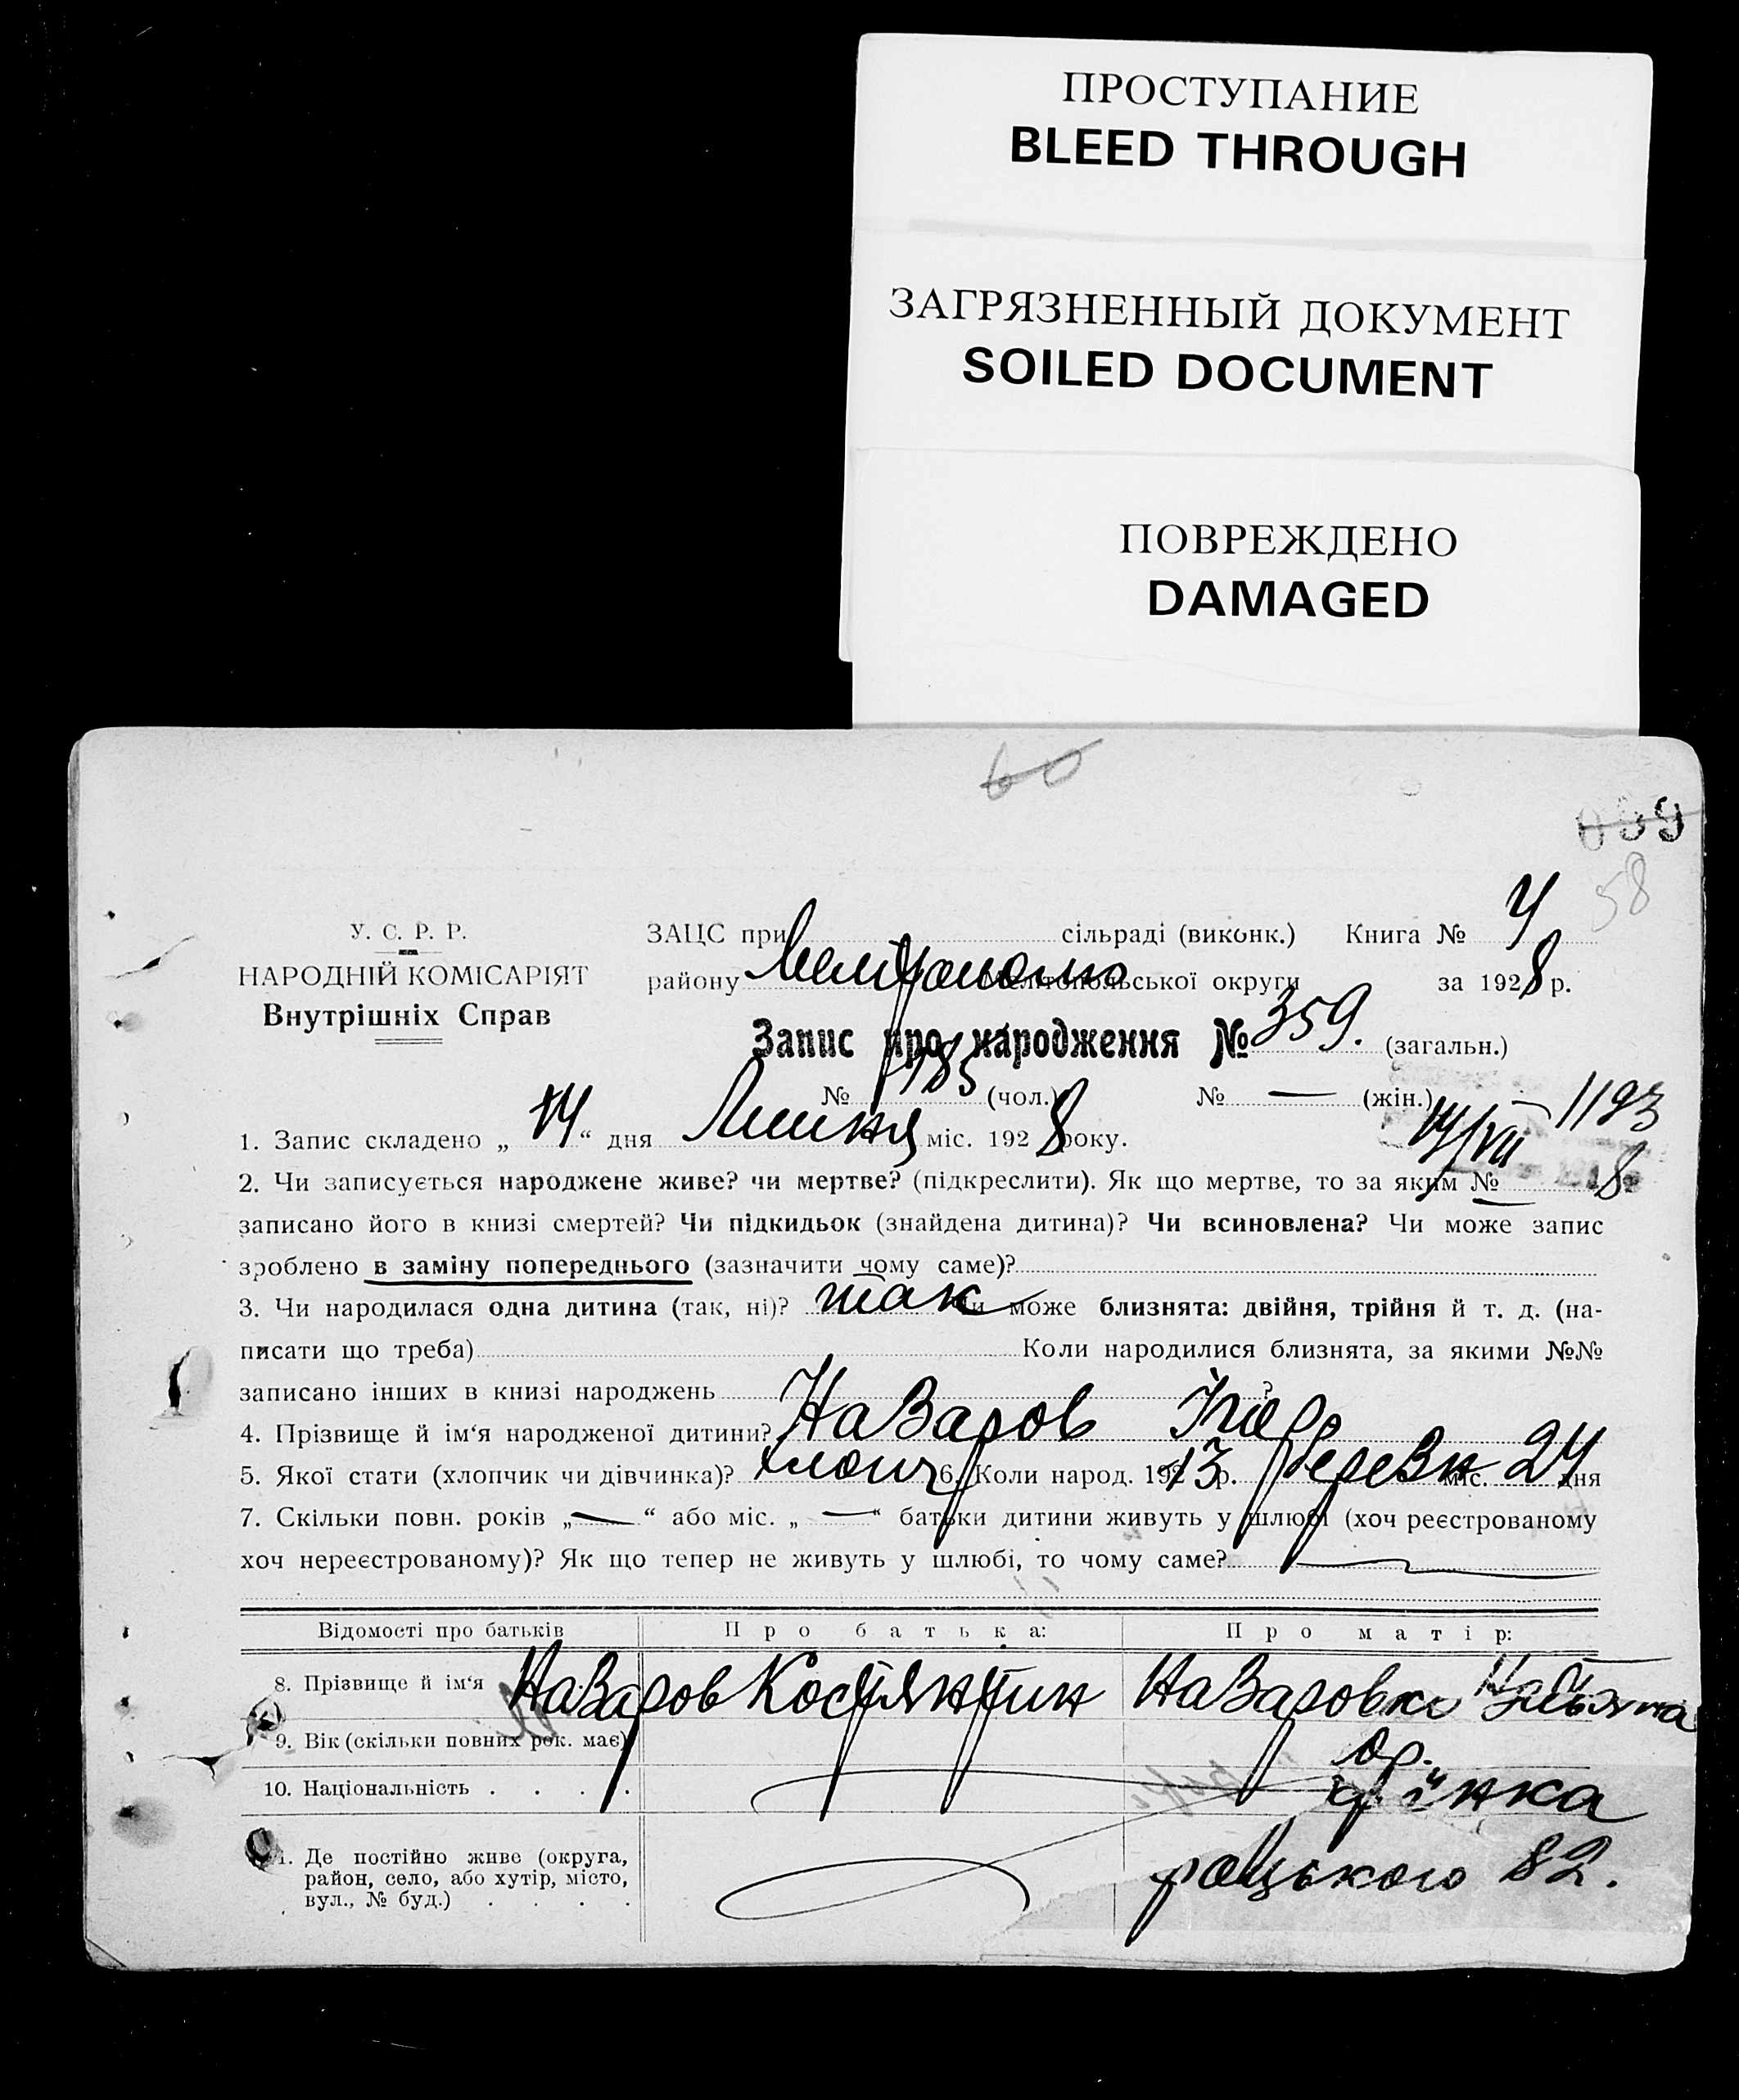 ПРОСТУПАНИЕ
BLEED THROUGH
ЗАГРЯЗНЕННЫЙ ДОКУМЕНТ
SOILED DOCUMENT
ПОВРЕЖДЕНО
DAMAGED
60
58
У. С. Р. Р.
НАРОДНІЙ КОМІСАРІЯТ
Внутрішніх Справ
ЗАЦС при сільраді (виконк.) Книга № 4
району Мелітопольської округи за 1928 р.
Запис про народження № 359. (загальн.)
№ 185 (чол.) № — (жін.)
1193
14/VII
8
1. Запис складено „14“ дня Липня міс. 1928 року.
2. Чи записується народжене живе? чи мертве? (підкреслити). Як що мертве, то за яким №
записано його в книзі смертей? Чи підкидьок (знайдена дитина)? Чи всиновлена? Чи може запис
зроблено в заміну попереднього (зазначити чому саме)?
3. Чи народилася одна дитина (так, ні)? так Чи може близнята: двійня, трійня й т. д. (на-
писати що треба) Коли народилися близнята, за якими №№
записано інших в книзі народжень ?
4. Прізвище й ім‘я народженої дитини? Назаров
5. Якої стати (хлопчик чи дівчинка)? хлопч 6. Коли народ. 192 13 р. міс. 24 дня
7. Скільки повн. років „—“ або міс. „—“ батьки дитини живуть у шлюбі (хоч реєстрованому
хоч нереєстрованому)? Як що тепер не живуть у шлюбі, то чому саме?
Відомості про батьків Про батька: Про матір:
8. Прізвище й ім‘я Назаров Костянтин Назарова
9. Вік (скільки повних рок. має)
10. Національність . . . .
11. Де постійно живе (округа,
район, село, або хутір, місто,
вул., № буд.) . . . .
82.